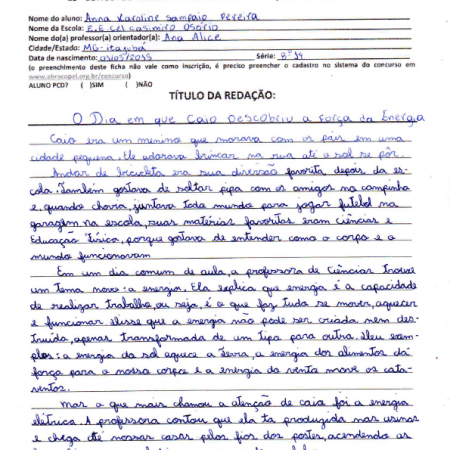 Nome do aluno: Anna Karoline Sampaio Pereira
Nome da Escola: E.E Cel Casimiro Osório
Nome do(a) professor(a) orientador(a): Ana Alice
Cidade/Estado: MG-itajubá
Data de nascimento: Série: 8º
(o preenchimento desta ficha não vale como inscrição, é preciso preencher o cadastro no sistema do concurso em
www.abracopel.org.br/concurso)
ALUNO PCD? ( )SIM ( )NÃO
TÍTULO DA REDAÇÃO:
O Dia em que Caio Descobriu a Força da Energia
Caio era um menino que morava com os pais em uma
cidade pequena. Ele adorava brincar na rua até o sol se pôr.
Andar de bicicleta era sua diversão favorita depois da es-
cola. Também gostava de soltar pipa com os amigos no campinho
e, quando chovia, juntava todo mundo para jogar futebol na
garagem. na escola, suas matérias favoritas eram ciências e
Educação Física, porque gostava de entender como o corpo e o
mundo funcionavam
Em um dia comum de aula, a professora de Ciências trouxe
um tema novo: a energia. Ela explica que energia é a capacidade
de realizar trabalho ou seja, é o que faz tudo se mover, aquecer
e funcionar. Disse que a energia não pode ser criada nem des-
truída, apenas transformada de um tipo para outro. Deu exem-
plos: a energia do sol aquece a Terra, a energia dos alimentos dá
força para o nosso corpo e a energia do vento move os cata-
ventos.
Mas o que mais chamou a atenção de caio foi a energia
elétrica. A professora contou que ela é produzida nas usinas
e chega até nossas casas pelos fios dos postes, acendendo as